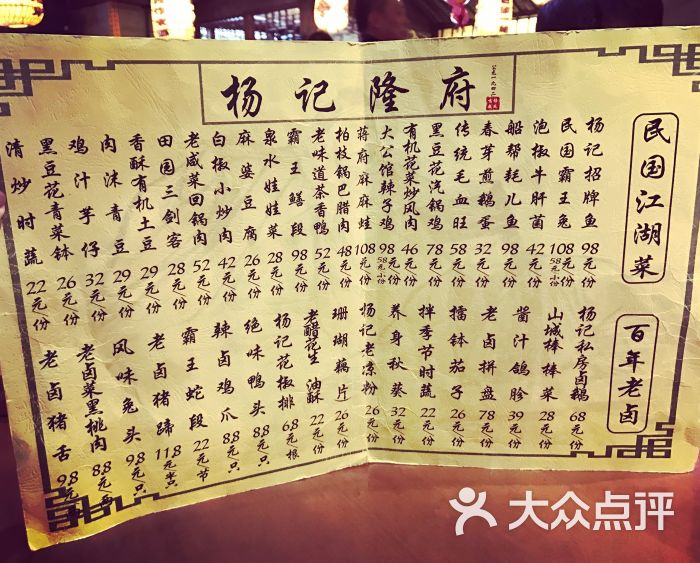 杨记隆府
公元一九四二
民国江湖菜
杨记招牌鱼 98元/份
民国霸王兔 108元/份 58元/小份
泡椒牛肝菌 42元/份
船帮耗儿鱼 98元/份
春芽煎鹅蛋 32元/份
传统毛血旺 58元/份
黑豆花汽锅鸡 78元/份
有机花菜炒风肉 46元/份
大公馆辣子鸡 98元/份 58元/小份
蒋府麻麻蛙 108元/份
柏枝锅巴腊肉 48元/份
老味道茶香鸭 52元/份
霸王鳝段 98元/份
泉水娃娃菜 28元/份
麻婆豆腐 26元/份
白椒小炒肉 42元/份
老咸菜回锅肉 52元/份
田园三剑客 28元/份
香酥有机土豆 29元/份
肉沫青豆 29元/份
鸡汁芋仔 32元/份
黑豆花青菜钵 26元/份
清炒时蔬 22元/份
百年老卤
杨记私房卤鹅 68元/份
山城棒棒菜 28元/份
酱汁鸽胗 39元/份
老卤拼盘 78元/份
擂钵茄子 26元/份
拌季节时蔬 22元/份
养身秋葵 32元/份
杨记老凉粉 26元/份
珊瑚藕片 26元/份
老醋花生 油酥 22元/份
杨记花椒排 6.8元/根
绝味鸭头 8.8元/只
辣卤鸡爪 8.8元/只
霸王蛇段 22元/节
老卤猪蹄 11.8元/只
风味兔头 9.8元/只
老卤菜黑桃肉 8.8元/两
老卤猪舌 9.8元/两
大众点评